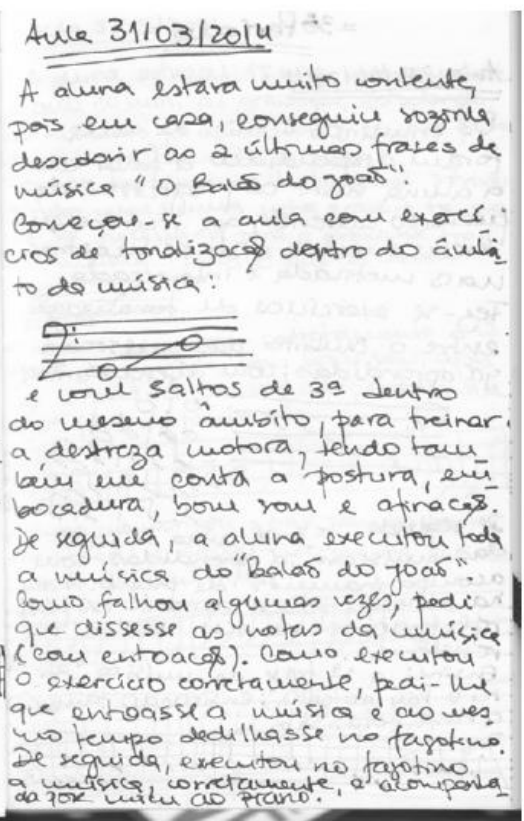 Aula 31/03/2014
A aluna estava muito contente,
pois em casa, conseguiu sozinha
descobrir as 2 últimas frases da
música "O Balão do João".
Começou-se a aula com exercí
cios de tonalização dentro do âmbi
to da música:
e com saltos de 3ª dentro
do mesmo âmbito, para treinar
a destreza motora, tendo tam
bém em conta a postura, em
bocadura, bom som e afinação.
De seguida, a aluna executou toda
a música do "Balão do João".
Como falhou algumas vezes, pedi
que dissesse as notas da música
(com entoação). Como executou
o exercício corretamente, pedi-lhe
que entoasse a música e ao mes
mo tempo dedilhasse no fagotino.
De seguida, executou no fagotino
a música, corretamente, e acompanha
da por mim ao piano.